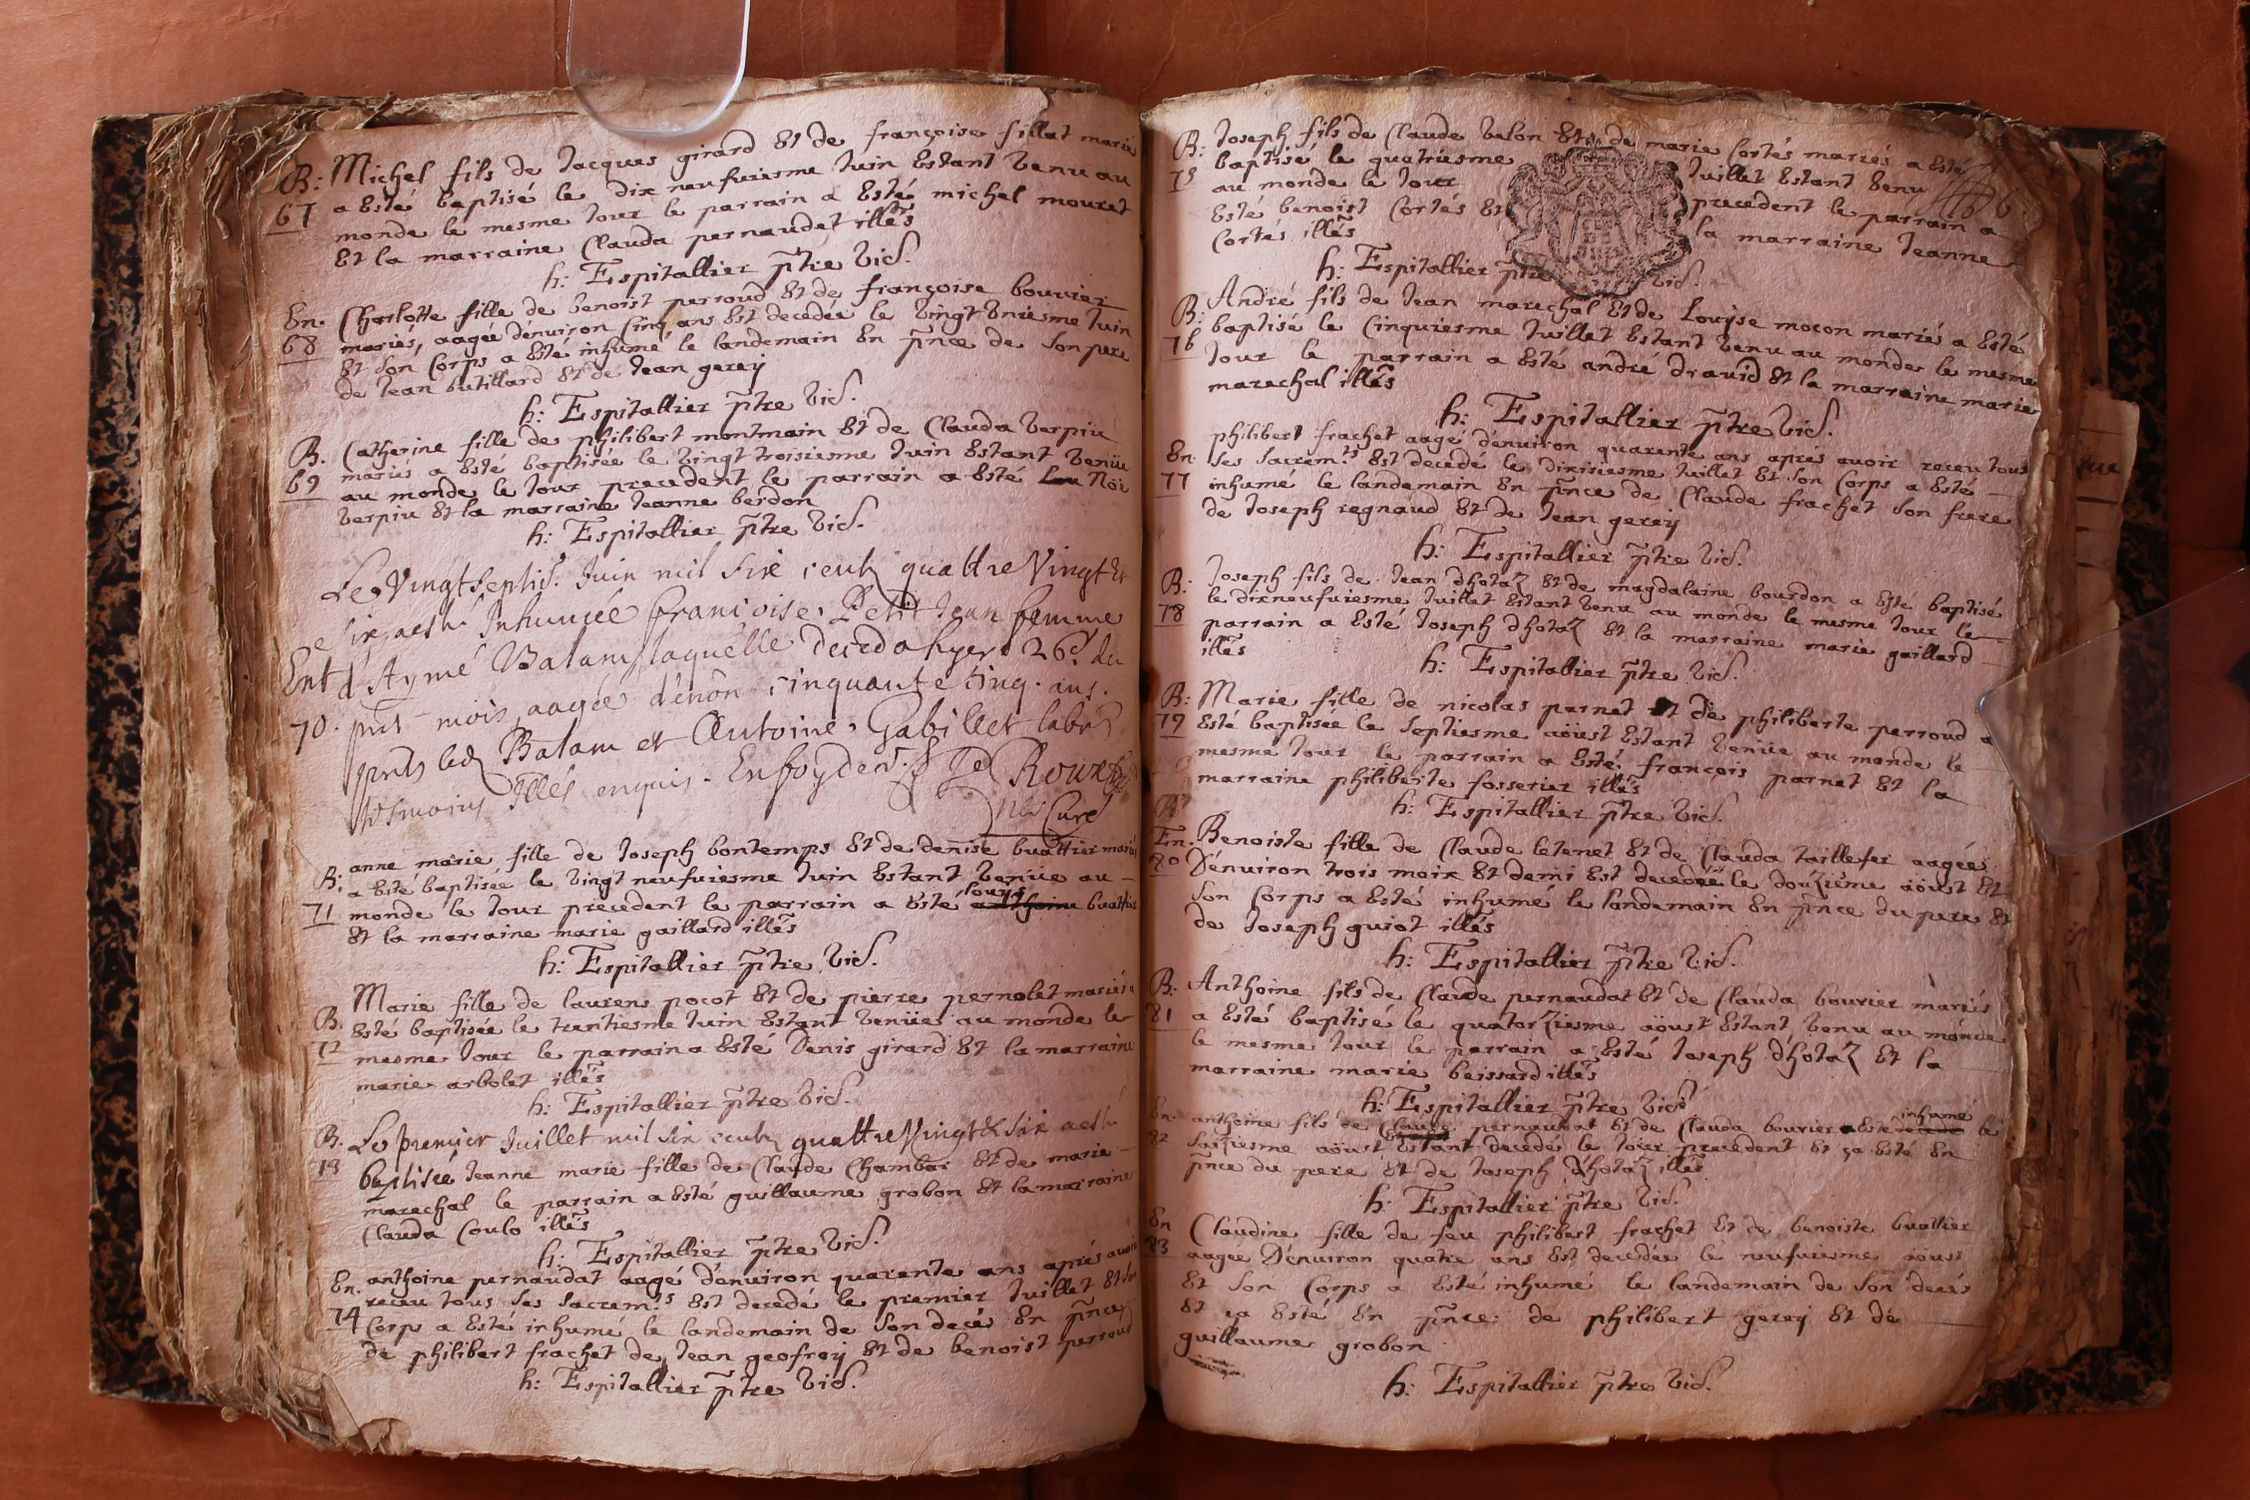 B: Michel fils de Jacques girard Et de françoise fillat mariés
67 a Esté baptisé le dix neufuiesme Juin Estant venu au
monde le mesme Jour le parrain a Esté michel mouret
Et la marraine Clauda pernaudet illés
h: Espitallier p̃tre vic.
En. Charlotte fille de benoist perroud Et de françoise bouvier
68 mariés, aagée dénuiron Cinq ans Est decedée le vingt uniesme Juin
Et son Corps a Esté inhumé le landemain En p̃nce de son pere
de Jean butillard Et de Jean gerey
h: Espitallier p̃tre vic.
B. Catherine fille de philibert montmain Et de Clauda verpiu
69 mariés a Esté baptisée le vingt troisiesme Juin Estant venüe
au monde le Jour precedent le parrain a Esté Noë
verpiu Et la marraine Jeanne berdon
h: Espitallier p̃tre vic.
Le Vingt septie. Juin mil six centz quattre Vingt &
six, a esté Inhumée francoise Petit Jean femme
Ent d'Aymé Balam laquelle deceda hyer 26e. du
70. pnt mois aagée d'enōn cinquante cinq. ans.
pnts led Balam et Antoine Gabillet labr
tesmoins Illés enquis. En foy de Roux
Curé
B: anne marie fille de Joseph bontemps Et de denise buattier mariés
a Esté baptisée le vingt neufuiesme Juin Estant venüe au
71 monde le Jour precedent le parrain a Esté louys anthoine buattier
Et la marraine marie gaillard illés
h: Espitallier p̃tre vic.
Marie fille de laurens pocot Et de pierre pernolet mariés a
B. Esté baptisée le trantiesme Juin Estant venüe au monde le
72 mesme Jour le parrain a Esté Denis girard Et la marraine
marie arbolet illés
h: Espitallier p̃tre vic.
B. Le premier Juillet mil six centz quattre Vingt & six a esté
73 baptisée Jeanne marie fille de Claude Chambar Et de marie
marechal le parrain a Esté guillaume grobon Et la marraine
Clauda Coulo illés
h: Espitallier p̃tre vic.
En. anthoine pernaudat aagé dénuiron quarente ans aprés auoir
receu tous ses sacremts Est decedé le premier Juillet Et son
74 Corps a Esté inhumé le landemain de son decés En p̃nce
de philibert frachet de Jean geofrey Et de benoist perroud
h: Espitallier p̃tre vic.
B: Joseph fils de Claude velon Et de marie Cortés mariés a Esté
75 baptisé le quatriesme Juillet Estant venu
au monde le Jour precedent le parrain a
Esté benoist Cortés Et la marraine Jeanne
Cortes illés
h: Espitallier p̃tre vic.
B: André fils de Jean marechal Et de Louyse mocon mariés a Esté
76 baptisé le Cinquiesme Juillet Estant venu au monde le mesme
Jour le parrain a Esté andré dravid Et la marraine marie
marechal illés
h: Espitallier p̃tre vic.
philibert frachet aagé dénuiron quarente ans apres auoir receu tous
En ses sacremts Est decedé le dixiesme Juillet Et son Corps a Esté
77 inhumé le landemain En p̃nce de Claude frachet son frere
de Joseph regnaud Et de Jean gerey
h: Espitallier p̃tre vic.
B: Joseph fils de Jean dhotaz Et de magdalaine bourdon a Esté baptisé
78 le dixneufuiesme Juillet Estant venu au monde le mesme Jour le
parrain a Esté Joseph dhotaz Et la marraine marie gaillard
illés
h: Espitallier p̃tre vic.
B: Marie fille de nicolas parnet Et de philiberte perroud a
79 Esté baptisée le septiesme aöust Estant venüe au monde le
mesme Jour le parrain a Esté françois parnet Et la
marraine philiberte fosserier illés
h: Espitallier p̃tre vic.
En. Benoiste fille de Claude letenet Et de Clauda taillefer aagée
80 Dénuiron trois moix Et demi Est decedée le douziéme aöust Et
son Corps a Esté inhumé le landemain En p̃nce du pere Et
de Joseph guiot illés
h: Espitallier p̃tre vic.
B: Anthoine fils de Claude pernaudat Et de Clauda bouvier mariés
81 a Esté baptisé le quatorziesme aöust Estant venu au monde
le mesme Jour le parrain a Esté Joseph dhotaz Et la
marraine marie beissard illés
h: Espitallier p̃tre vic.
En. anthoine fils de Claude pernaudat Et de Clauda bouvier a Esté inhumé le
82 saiziesme aöust Estant decedé le Jour precedent Et ça Esté En
p̃nce du pere Et de Joseph Dhotaz illés
h: Espitallier p̃tre vic.
En Claudine fille de feu philibert frachet Et de benoiste buattier
83 aagée Dénuiron quatre ans Est decedée le neufuiesme aöust
Et son Corps a Esté inhumé le landemain de son decés
Et ça Esté En p̃nce de philibert gerey Et de
guillaume grobon
h: Espitallier p̃tre vic.